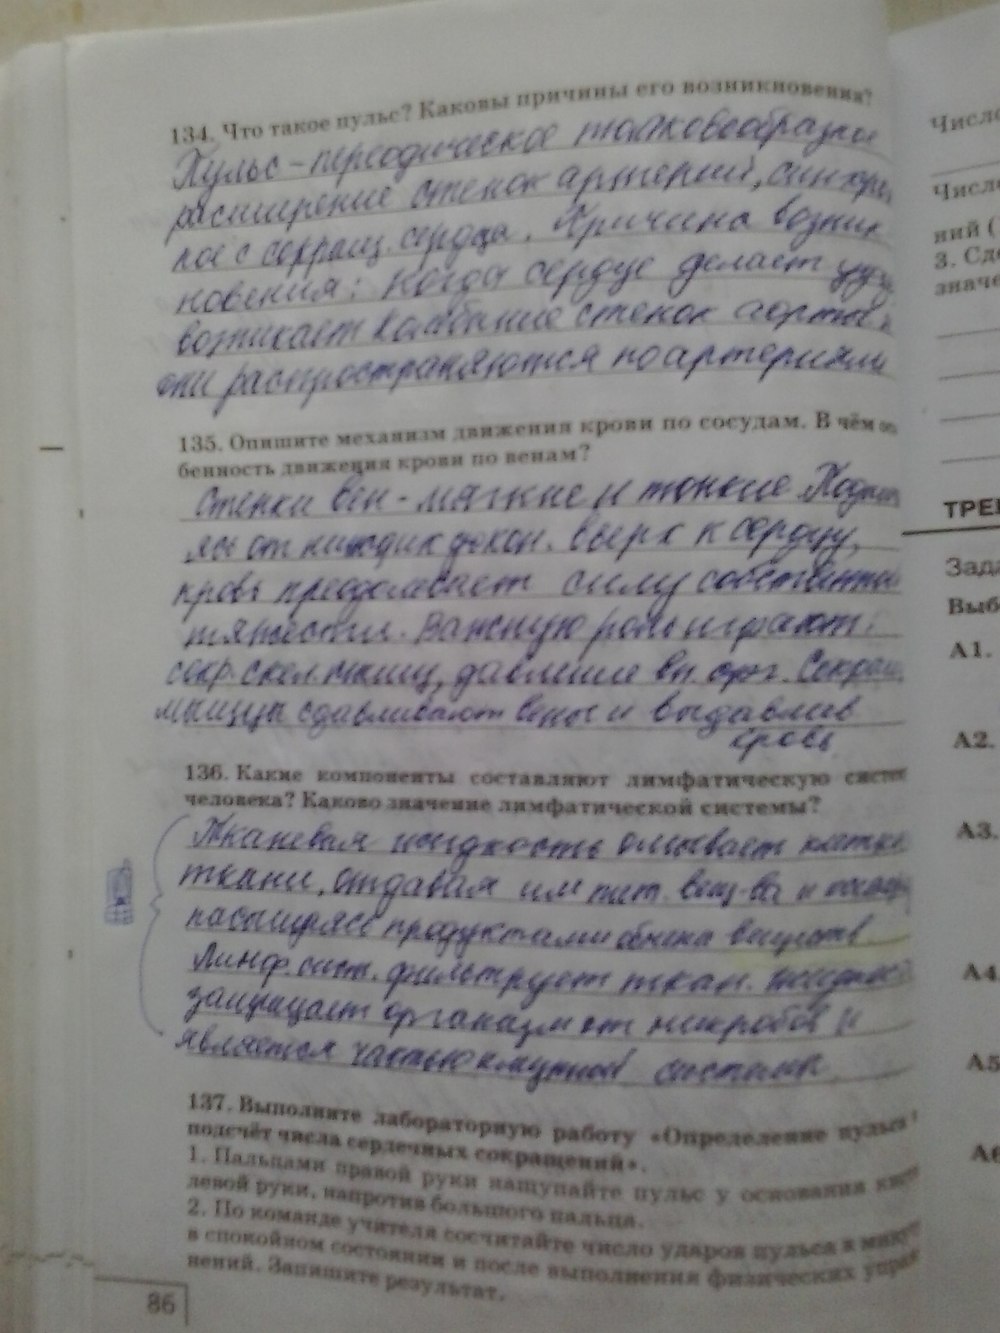 134. Что такое пульс? Каковы причины его возникновения?
Пульс - периодическое толчкообразное
расширение стенок артерий, синхрон
ное с сокращ. сердца. Причина возник
новения: Когда сердце делает
возникает колебание стенок аорты и
они распространяются по артериям
135. Опишите механизм движения крови по сосудам. В чём осо
бенность движения крови по венам?
Стенки вен - мягкие и тонкие
от нижних конеч. вверх к сердцу,
кровь преодолевает силу собственной
тяжести. Важную роль играют:
сокр. скел. мышц, давление вн. орг.
мышцы сдавливают вены и выдавлив
кровь
136. Какие компоненты составляют лимфатическую систему
человека? Каково значение лимфатической системы?
Тканевая жидкость омывает клетки
ткани, отдавая им пит. вещ-ва и
насыщаясь продуктами обмена веществ
Лимф. сист. фильтрует ткан. жидкос
защищает организм от микробов и
является частью имунной системы
137. Выполните лабораторную работу «Определение пульса и
подсчёт числа сердечных сокращений».
1. Пальцами правой руки нащупайте пульс у основания кисти
левой руки, напротив большого пальца.
2. По команде учителя сосчитайте число ударов пульса в минуту
в спокойном состоянии и после выполнения физических упраж
нений. Запишите результат.
86
Число
Число
ний (
3. Сде
значе
ТРЕ
Зада
Выб
А1.
А2.
А3.
А4
А5
А6